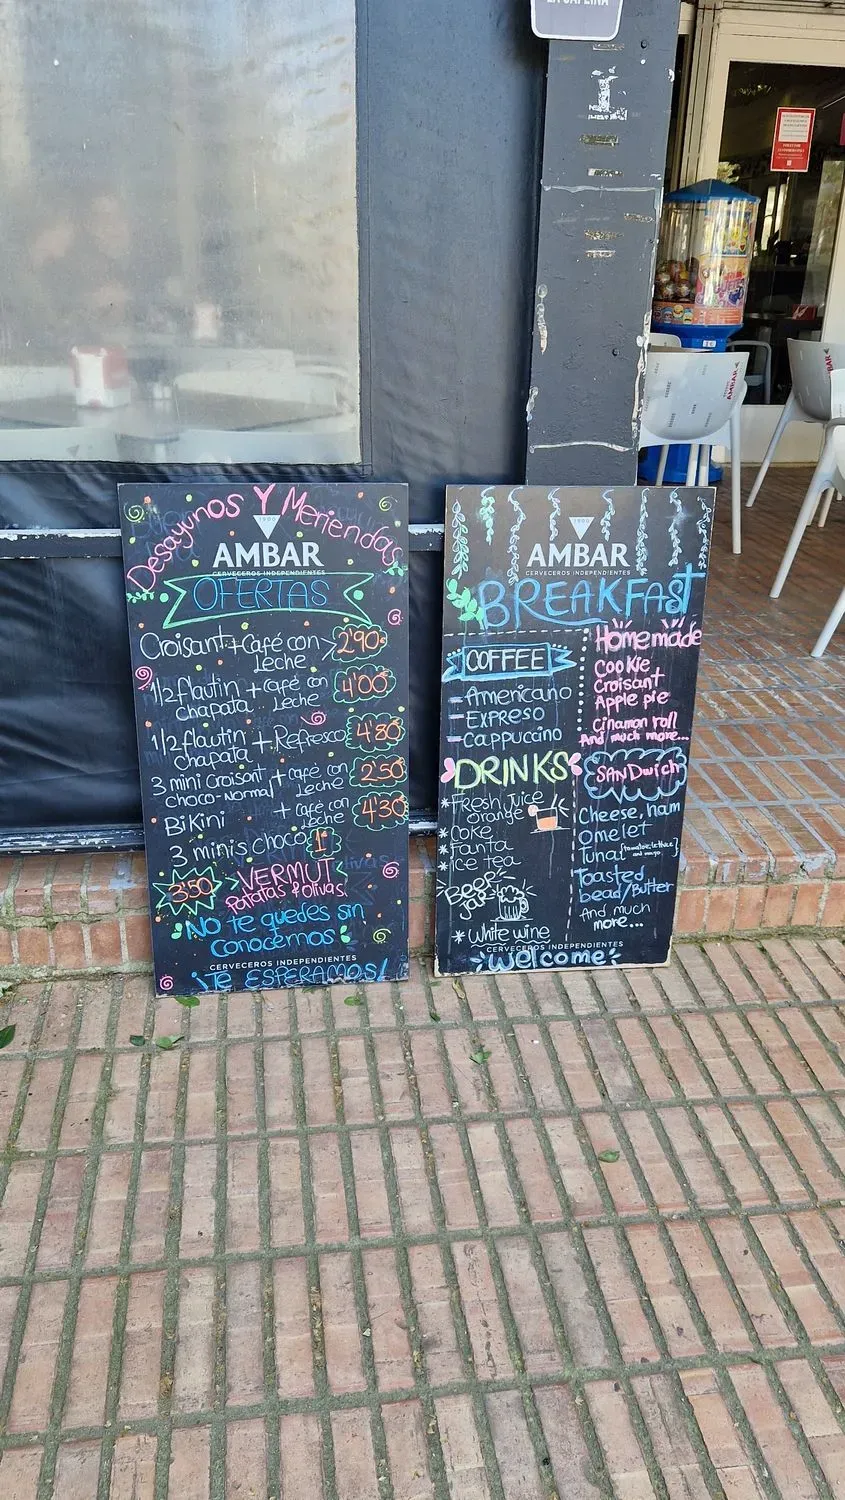 LA CAFEINA
Desayunos Y Meriendas
1900
AMBAR
CERVECEROS INDEPENDIENTES
OFERTAS
Croisant + Café con Leche > 2'90
1/2 flautin chapata + café con Leche 4'00
1/2 flautin chapata + Refresco 4'80
3 mini Croisant choco-normal + café con Leche 2'50
Bikini + café con Leche 4'30
3 minis choco 1'
3'50 > VERMUT
Patatas & olivas
No te quedes sin
conocernos
CERVECEROS INDEPENDIENTES
¡TE ESPERAMOS!
1900
AMBAR
CERVECEROS INDEPENDIENTES
BREAKFAST
COFFEE
- Americano
- EXPRESO
- Cappuccino
DRINKS
* Fresh Juice
orange
* Coke
* Fanta
* ice tea
Beer
Jar
* White wine
Homemade
Cookie
Croisant
Apple pie
Cinamon roll
And much more...
SANDwich
Cheese, ham
Omelet
Tuna
Toasted
bead/Butter
And much
more...
CERVECEROS INDEPENDIENTES
welcome
AMBAR
AMBAR